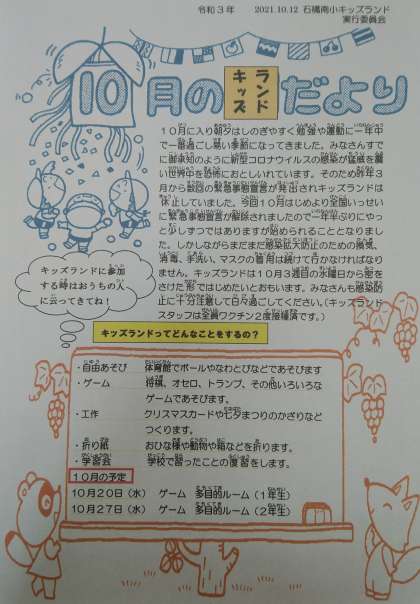 令和３年　2021.10.12 石橋南小キッズランド
実行委員会
10月のキッズランドだより
１０月に入り朝夕はしのぎやすく勉強や運動に一年中
で一番過ごし易い季節になってきました。みなさんすで
に御承知のように新型コロナウイルスの感染が猛威を震
い世界中を恐怖におとしいれています。そのため昨年３
月から数回の緊急事態宣言が発出されキッズランドは
休止していました。今回１０月はじめより全国いっせい
に緊急事態宣言が解除されましたので一年半ぶりにやっ
と少しずつではありますが始められることとなりまし
た。しかしながらまだまだ感染拡大防止のための換気、
消毒、手洗い、マスクの着用は続けて行かなければなり
ません。キッズランドは１０月３週目の水曜日から密を
さけた形ではじめたいとおもいます。みなさんも感染防
止に十分注意して日々過ごしてください。（キッズランド
スタッフは全員ワクチン２度接種済です。）
キッズランドに参加
する時はおうちの人
に云ってきてね！
キッズランドってどんなことをするの？
・自由あそび　体育館でボールやなわとびなどであそびます
・ゲーム　将棋、オセロ、トランプ、その他いろいろな
ゲームであそびます。
・工作　クリスマスカードや七夕まつりのかざりなど
つくります。
・折り紙　おひな様や動物や箱などを折ります。
・学習会　学校で習ったことの復習をします。
１０月の予定
１０月２０日（水）　ゲーム　多目的ルーム（１年生）
１０月２７日（水）　ゲーム　多目的ルーム（２年生）